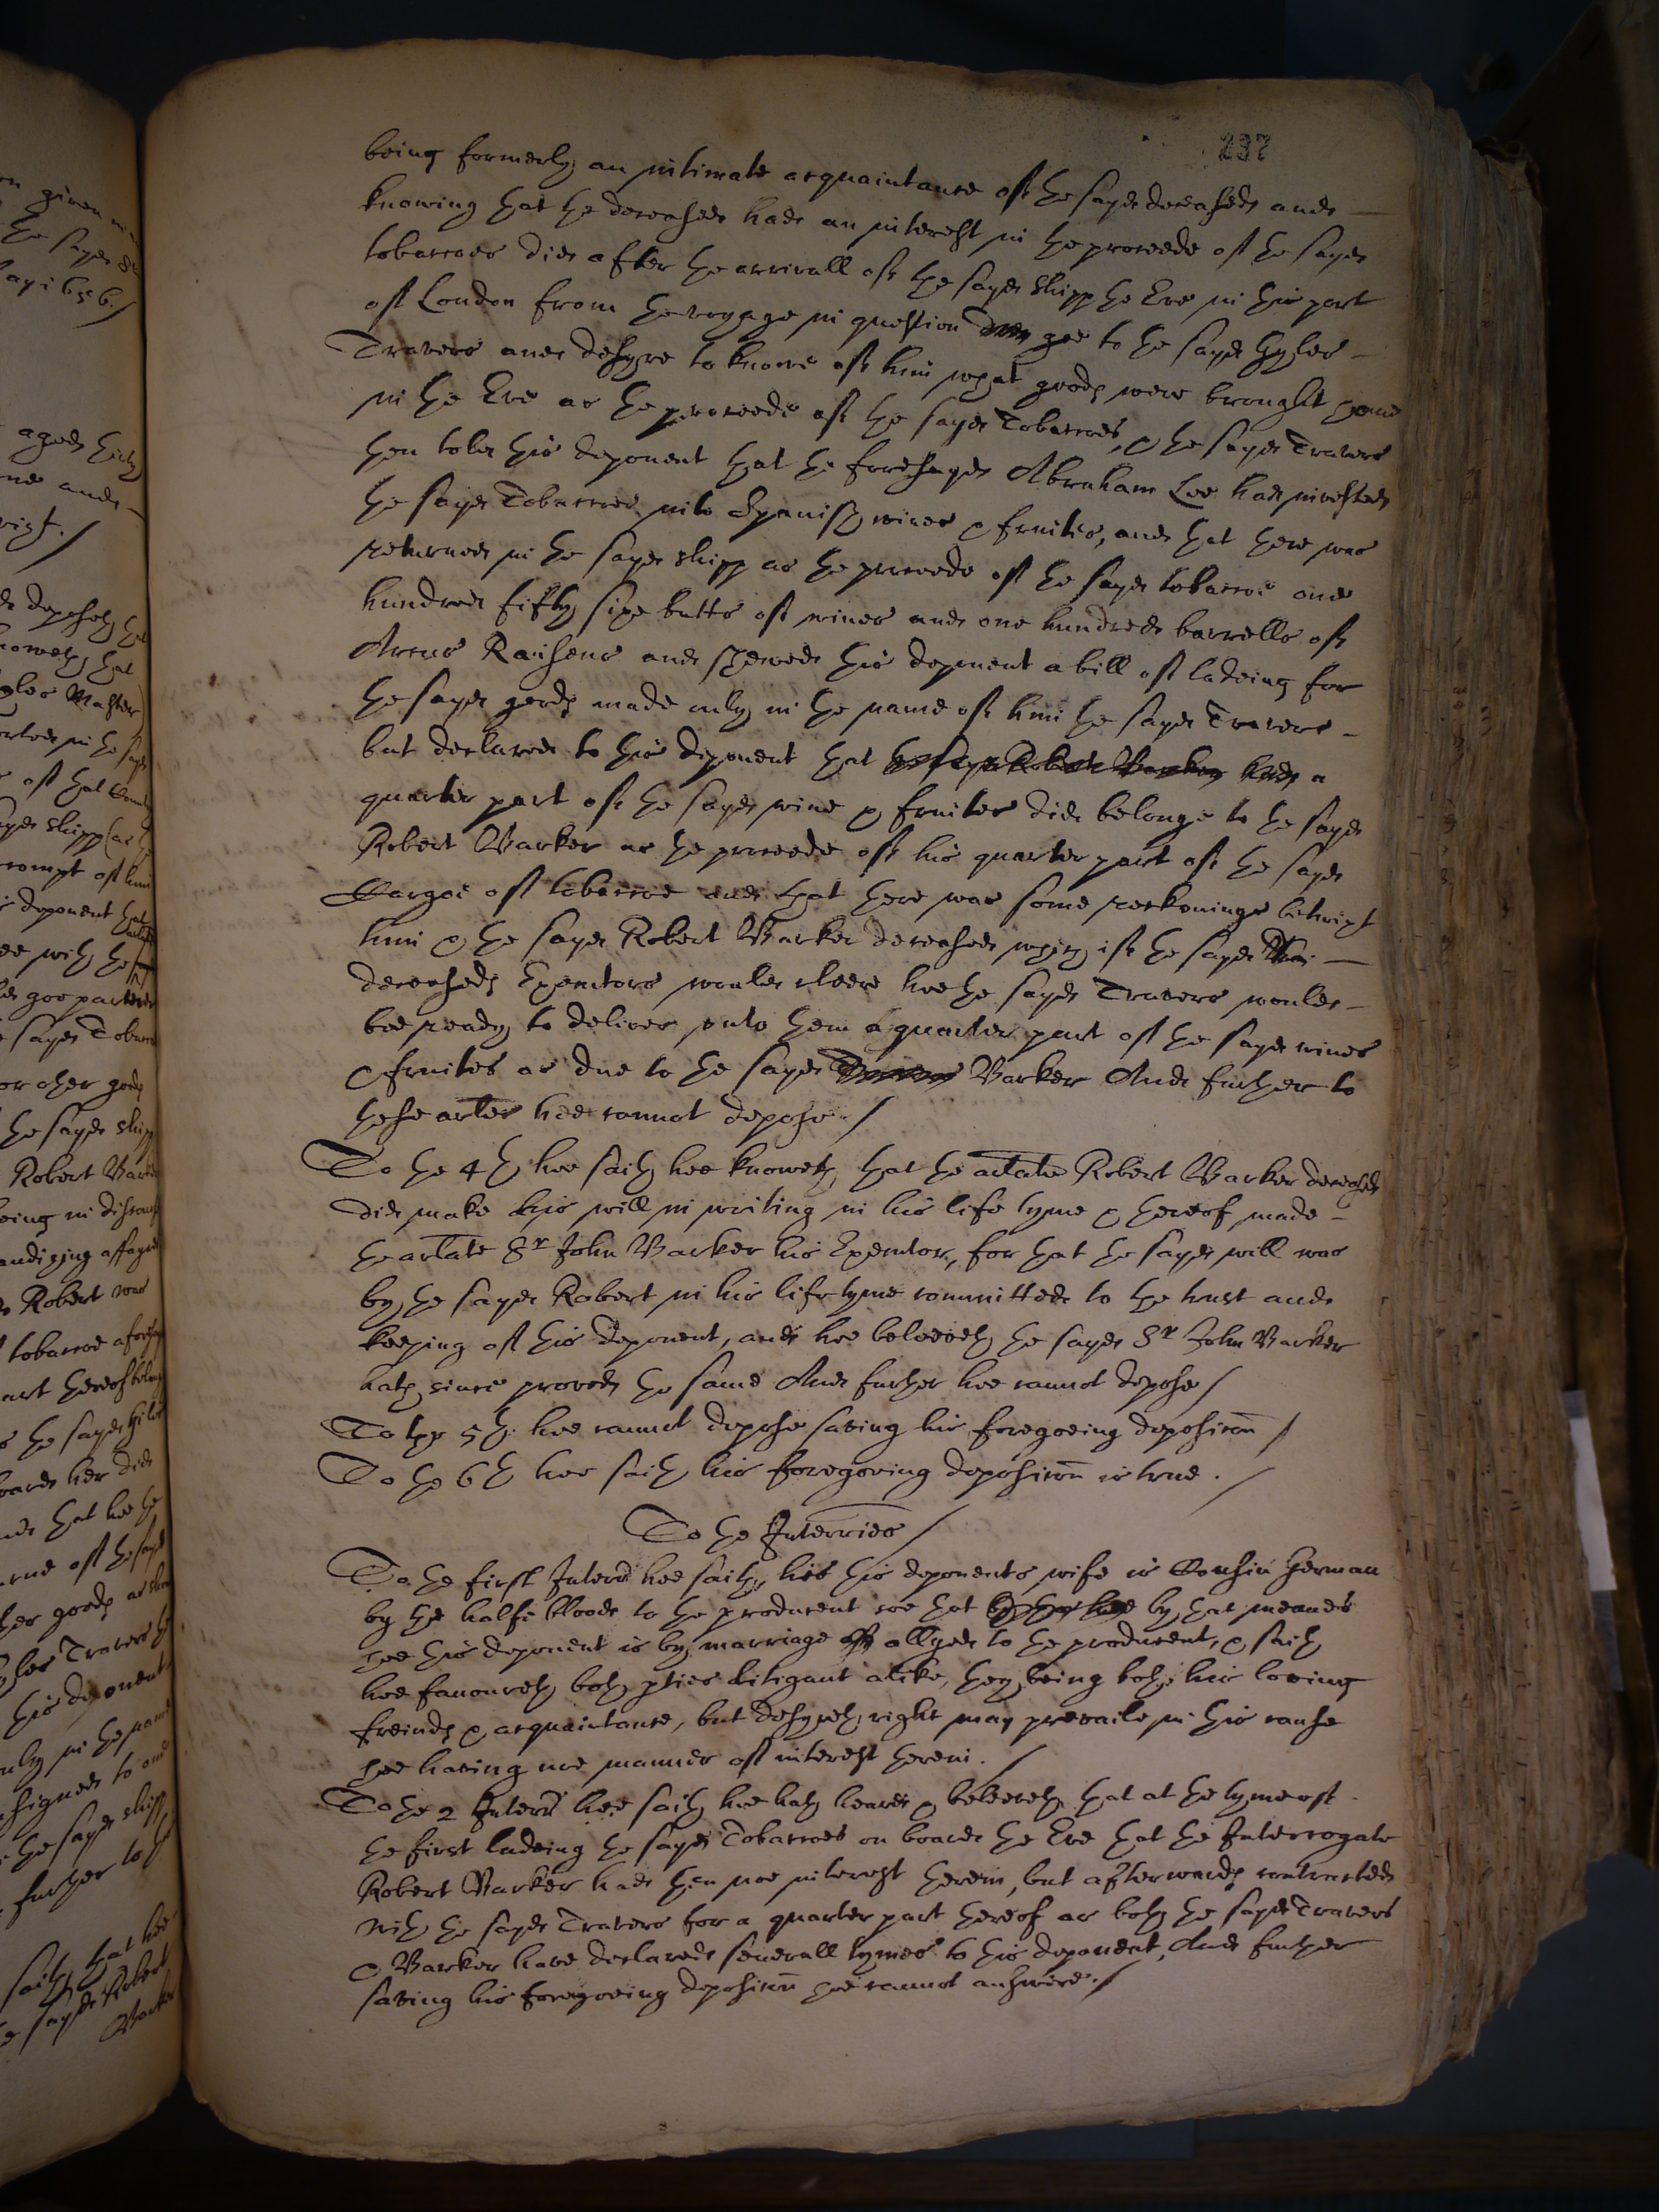 237
being formerly an intimate acquaintance of the sayd deceased and
knowing that the deceased had an interest in the proceede of the sayd
tobaccoes did after the arrivall of the sayd shipp the Eve in this port
of London from the voyage in question goe to the sayd Gyles
Travers and desyre to knowe of him what goods were brought home
in the Eve as the proceede of the sayd Tobaccoes, & the sayd Travers
then told this deponent that the foresayd Abraham Lee had invested
the sayd Tobaccoes into Spanish wines & fruites, and that there was
returned in the sayd shipp as the proceede of the sayd tobaccoe one
hundred fifty sixe butts of wines and one hundred barrells of
Raisens and shewed this deponent a bill of ladeing for
the sayd goods made only in the name of him the sayd Travers
but declared to this deponent that the sayd Robert Barker had a
quarter part of the sayd wine & fruites did belonge to the sayd
Robert Barker as the proceede of his quarter part of the sayd
Cargoe of tobaccoe and that there was some reckonings betwixt
him & the sayd Robert Barker deceased which if the sayd
deceaseds Executors would cleere hee the sayd Travers would
bee ready to deliver unto them a quarter part of the sayd wines
& fruites as due to the sayd Travers Barker And further to
these arles hee cannot depose./
To the 4th hee saith hee knoweth that the arlate Robert Barker deceased
did make his will in writing in his life tyme & thereof made
the arlate Sr John Barker his Executor, for that the sayd will was
by the sayd Robert in his life tyme committed to the trust and
keeping of this deponent, and hee beleeveth the sayd Sr John Barker
hath since proved the same And further hee cannot depose/
To the 5th hee cannot depose saving his foregoeing deposicon/
To the 6th hee saith his foregoeing deposicon is true./
To the Interries/
To the first Interr hee saith, hee this deponents wife is Cousin German
by the halfe bloode to the producent soe that by that meanes
hee this deponent is by marriage allyed to the producent, & saith
hee favoureth both pties litigant alike, they being both his loving
freinds & acquaintance, but desyreth right may prevaile in this cause
hee having noe manner of interest therein./
To the 2 Interr hee saith hee hath heard & beleeveth that at the tyme of
the first ladeing the sayd Tobaccoes on board the Eve that the Interrogate
Robert Barker had then noe interest therein, but afterwards contracted
with the sayd Travers for a quarter part thereof as both the sayd Travers
& Barker have declared severall tymes to this deponent, And further
saving his foregoeing deposicon hee cannot answere./